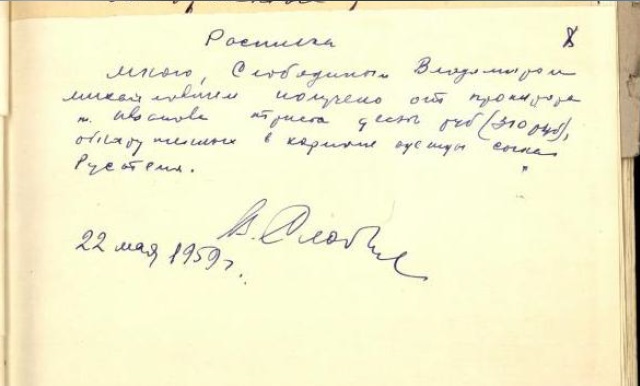 8
Расписка
Мною, Слободиным Владимиром
Михайловичем получено от прокурора
т. Иванова триста десять руб (310 руб),
обнаруженных в кармане одежды сына
Рустема.
В. Слободин
22 мая 1959 г.